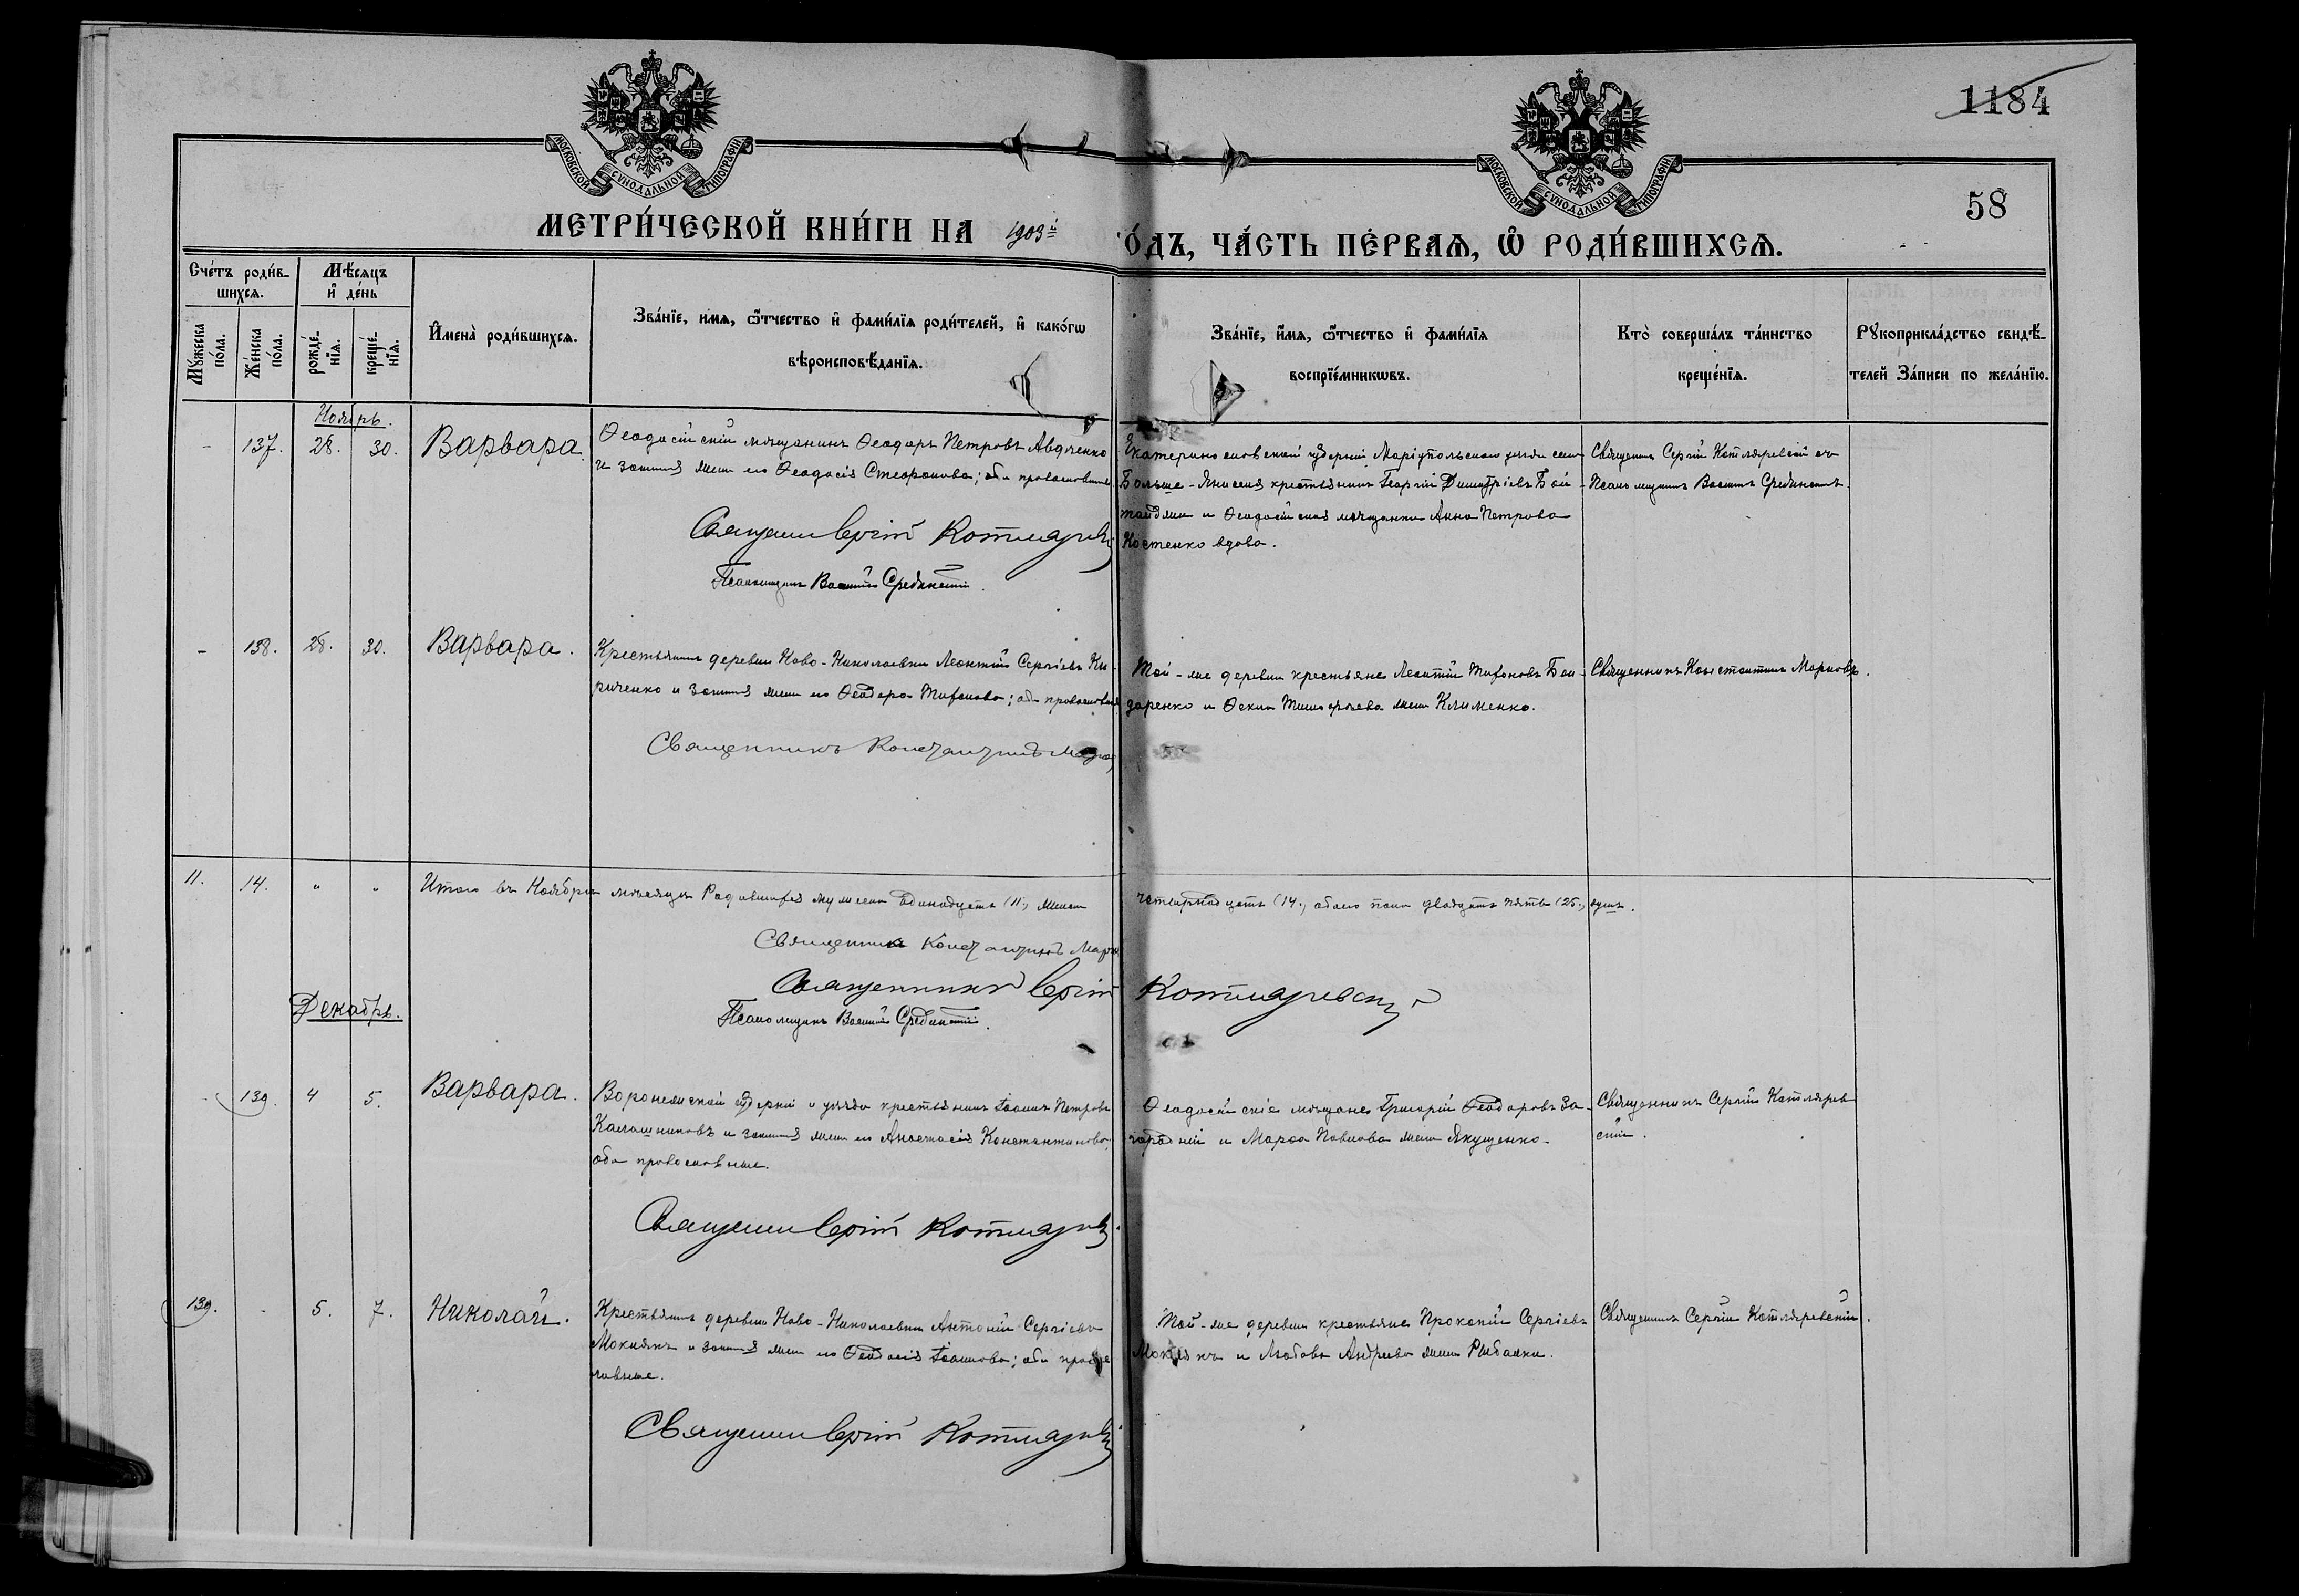 1184
58
МОСКОВСКОЙ СѴНОДАЛЬНОЙ ТИПОГРАФІИ
МОСКОВСКОЙ СѴНОДАЛЬНОЙ ТИПОГРАФІИ
МЕТРИ́ЧЕСКОЙ КНИ́ГИ НА 1903й
О́ДЪ, ЧА́СТЬ ПЕ́РВАѦ, Ѡ҆ РОДИ́ВШИХСѦ.
Сче́тъ роди́в-
шихсѧ.
Мѣ́сѧцъ
и҆ де́нь
Мꙋ́жеска
по́ла.
Же́нска
по́ла.
рожде́-
нїѧ.
креще́-
нїѧ.
И҆мена̀ роди́вшихсѧ.
Зва́нїе, и҆́мѧ, ѻ҆́тчество и҆ фами́лїѧ роди́телей, и҆ како́гѡ
вѣроисповѣ́данїѧ.
Зва́нїе, и҆́мѧ, ѻ҆́тчество и҆ фами́лїѧ
воспрїе́мникѡвъ.
Кто̀ соверша́лъ та́инство
креще́нїѧ.
Рꙋкоприкла́дство свидѣ́-
телей За́писи по жела́нїю.
Ноябрь.
- 137. 28. 30. Варвара
Ѳеодосійскій мѣщанинъ Ѳеодоръ Петровъ Авдѣенко
и законная жена его Ѳеодосія Стефанова; оба православные
Священникъ Сергій Котляревскій
Псаломщикъ Василій Срединскій.
Екатеринославской губерніи Маріупольскаго уѣзда села
Больше-Янисоля крестьянинъ Георгій Димитріевъ
и Ѳеодосійская мѣщанка Анна Петрова
Костенко вдова.
Священникъ Сергій Котляревскій съ
Псаломщикомъ Василіемъ Срединскимъ
- 138. 28. 30. Варвара.
Крестьянинъ деревни Ново-Николаевки Леонтій Сергіевъ Ки-
риченко и законная жена его Ѳеодора Тифонова; оба православные
Священникъ Константинъ Марковъ
Той-же деревни крестьяне Леонтій Тифоновъ Бон-
даренко и Ѳекла Тимоѳеева жена Клименко.
Священникъ Константинъ Марковъ.
11. 14. „ „ Итого въ Ноябрѣ мѣсяцѣ Родившихся мужеска одинадцать (11), женска
четырнадцать (14), обоего пола двадцать пять (25), душъ.
Священникъ Константинъ Марк
Священникъ Сергій Котляревскій
Псаломщикъ Василій Срединскій.
Декабрь.
- 139. 4 5. Варвара.
Воронежской губерніи и уѣзда крестьянинъ Іоаннъ Петровъ
Калашниковъ и законная жена его Анастасія Константинова,
оба православные.
Священникъ Сергій Котляревскій
Ѳеодосійскіе мѣщане Григорій Ѳеодоровъ За-
городній и Марѳа Павлова жена Якущенко.
Священникъ Сергій Котлярев-
скій.
139. - 5. 7. Николай.
Крестьянинъ деревни Ново-Николаевки Антоній Сергіевъ
Мокіякъ и законная жена его Ѳеодосія Іоаннова; оба правос-
лавные.
Священникъ Сергій Котляревскій
Той-же деревни крестьяне Прокопій Сергіевъ
Мокіякъ и Любовь Андреева жена Рыбалки.
Священникъ Сергій Котляревскій.